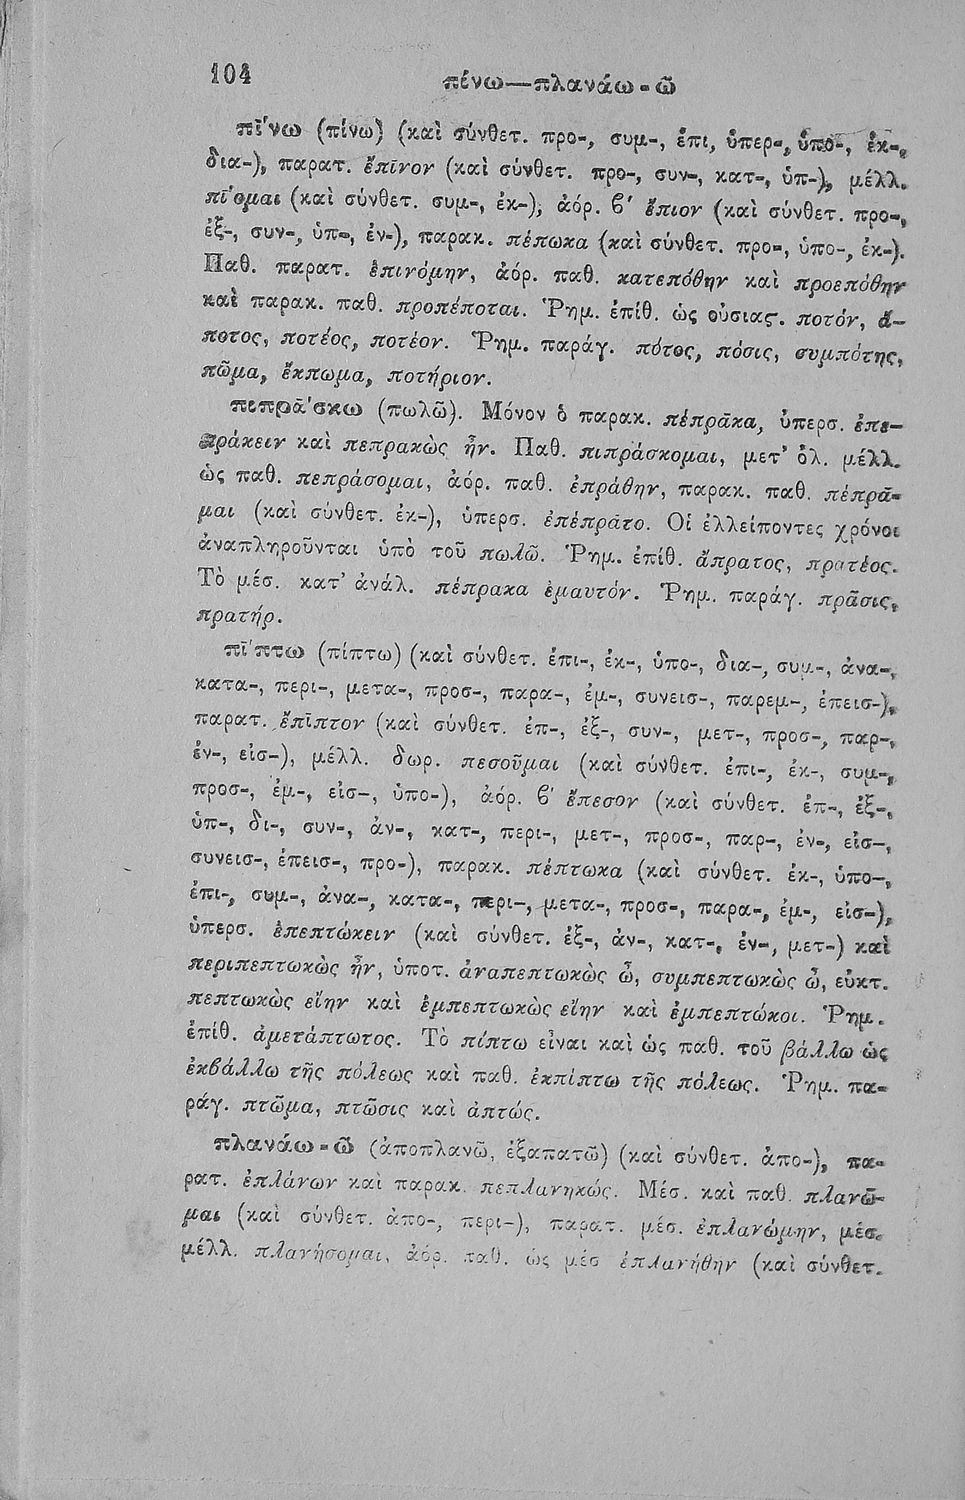 104
πίνω—πλανάω-ῶ
πί̄νω (πίνω) (καὶ σύνθετ. προ-, συμ-, ἐπι, ὑπερ-, ὑπο-, ἐκ-,
δια-), παρατ. ἔπῑνον (καὶ σύνθετ. προ-, συν-, κατ-, ὑπ-), μέλλ.
πί̄ομαι (καὶ σύνθετ. συμ-, ἐκ-), ἀόρ. ϐ' ἔπιον (καὶ σύνθετ. προ-,
ἐξ-, συν-, ὑπ-, ἐν-), παρακ. πέπωκα (καὶ σύνθετ. προ-, ὑπο-, ἐκ-).
Παθ. παρατ. ἐπινόμην, ἀόρ. παθ. κατεπόθην καὶ προεπόθην
καὶ παρακ. παθ. προπέποται. Ῥημ. ἐπίθ. ὡς οὐσιας. ποτόν, ἄ-
ποτος, ποτέος, ποτέον. Ῥημ. παράγ. πότος, πόσις, συμπότης,
πῶμα, ἔκπωμα, ποτήριον.
πιπρά̄σκω (πωλῶ). Μόνον ὁ παρακ. πέπρᾱκα, ὑπερσ. ἐπε-
πράκειν καὶ πεπρακὼς ἦν. Παθ. πιπράσκομαι, μετ' ὀλ. μέλλ.
ὡς παθ. πεπράσομαι, ἀόρ. παθ. ἐπράθην, παρακ. παθ. πέπρᾱ-
μαι (καὶ σύνθετ. ἐκ-), ὑπερσ. ἐπέπρᾱτο. Οἱ ἐλλείποντες χρόνοι
ἀναπληροῦνται ὑπὸ τοῦ πωλῶ. Ῥημ. ἐπίθ. ἄπρατος, πρατέος.
Τὸ μέσ. κατ' ἀνάλ. πέπρακα ἐμαυτόν. Ῥημ. παράγ. πρᾶσις,
πρατήρ.
πί̄πτω (πίπτω) (καὶ σύνθετ. ἐπι-, ἐκ-, ὑπο-, δια-, συμ-, ἀνα-,
κατα-, περι-, μετα-, προσ-, παρα-, ἐμ-, συνεισ-, παρεμ-, ἐπεισ-),
παρατ. ἔπῑπτον (καὶ σύνθετ. ἐπ-, ἐξ-, συν-, μετ-, προσ-, παρ-,
ἐν-, εἰσ-), μέλλ. δωρ. πεσοῦμαι (καὶ σύνθετ. ἐπι-, ἐκ-, συμ-,
προσ-, ἐμ-, εἰσ-, ὑπο-), ἀόρ. ϐ' ἔπεσον (καὶ σύνθετ. ἐπ-, ἐξ-,
ὑπ-, δι-, συν-, ἀν-, κατ-, περι-, μετ-, προσ-, παρ-, ἐν-, εἰσ-,
συνεισ-, ἐπεισ-, προ-), παρακ. πέπτωκα (καὶ σύνθετ. ἐκ-, ὑπο-,
ἐπι-, συμ-, ἀνα-, κατα-, περι-, μετα-, προσ-, παρα-, ἐμ-, εἰσ-),
ὑπερσ. ἐπεπτώκειν (καὶ σύνθετ. ἐξ-, ἀν-, κατ-, ἐν-, μετ-) καὶ
περιπεπτωκὼς ἦν, ὑποτ. ἀναπεπτωκὼς ὦ, συμπεπτωκὼς ὦ, εὐκτ.
πεπτωκὼς εἴην καὶ ἐμπεπτωκὼς εἴην καὶ ἐμπεπτώκοι. Ῥημ.
ἐπίθ. ἀμετάπτωτος. Τὸ πίπτω εἶναι καὶ ὡς παθ. τοῦ βάλλω ὡς
ἐκβάλλω τῆς πόλεως καὶ παθ. ἐκπίπτω τῆς πόλεως. Ῥημ. πα-
ράγ. πτῶμα, πτῶσις καὶ ἀπτώς.
πλανάω-ῶ (ἀποπλανῶ, ἐξαπατῶ) (καὶ σύνθετ. ἀπο-), πα-
ρατ. ἐπλάνων καὶ παρακ. πεπλανηκώς. Μέσ. καὶ παθ. πλανῶ-
μαι (καὶ σύνθετ. ἀπο-, περι-), παρατ. μέσ. ἐπλανώμην, μέσ.
μέλλ. πλανήσομαι, ἀόρ. παθ. ὡς μέσ ἐπλανήθην (καὶ σύνθετ.